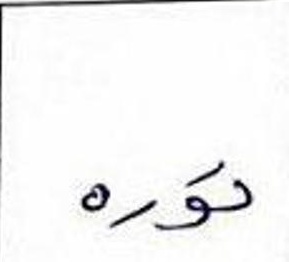 نوره